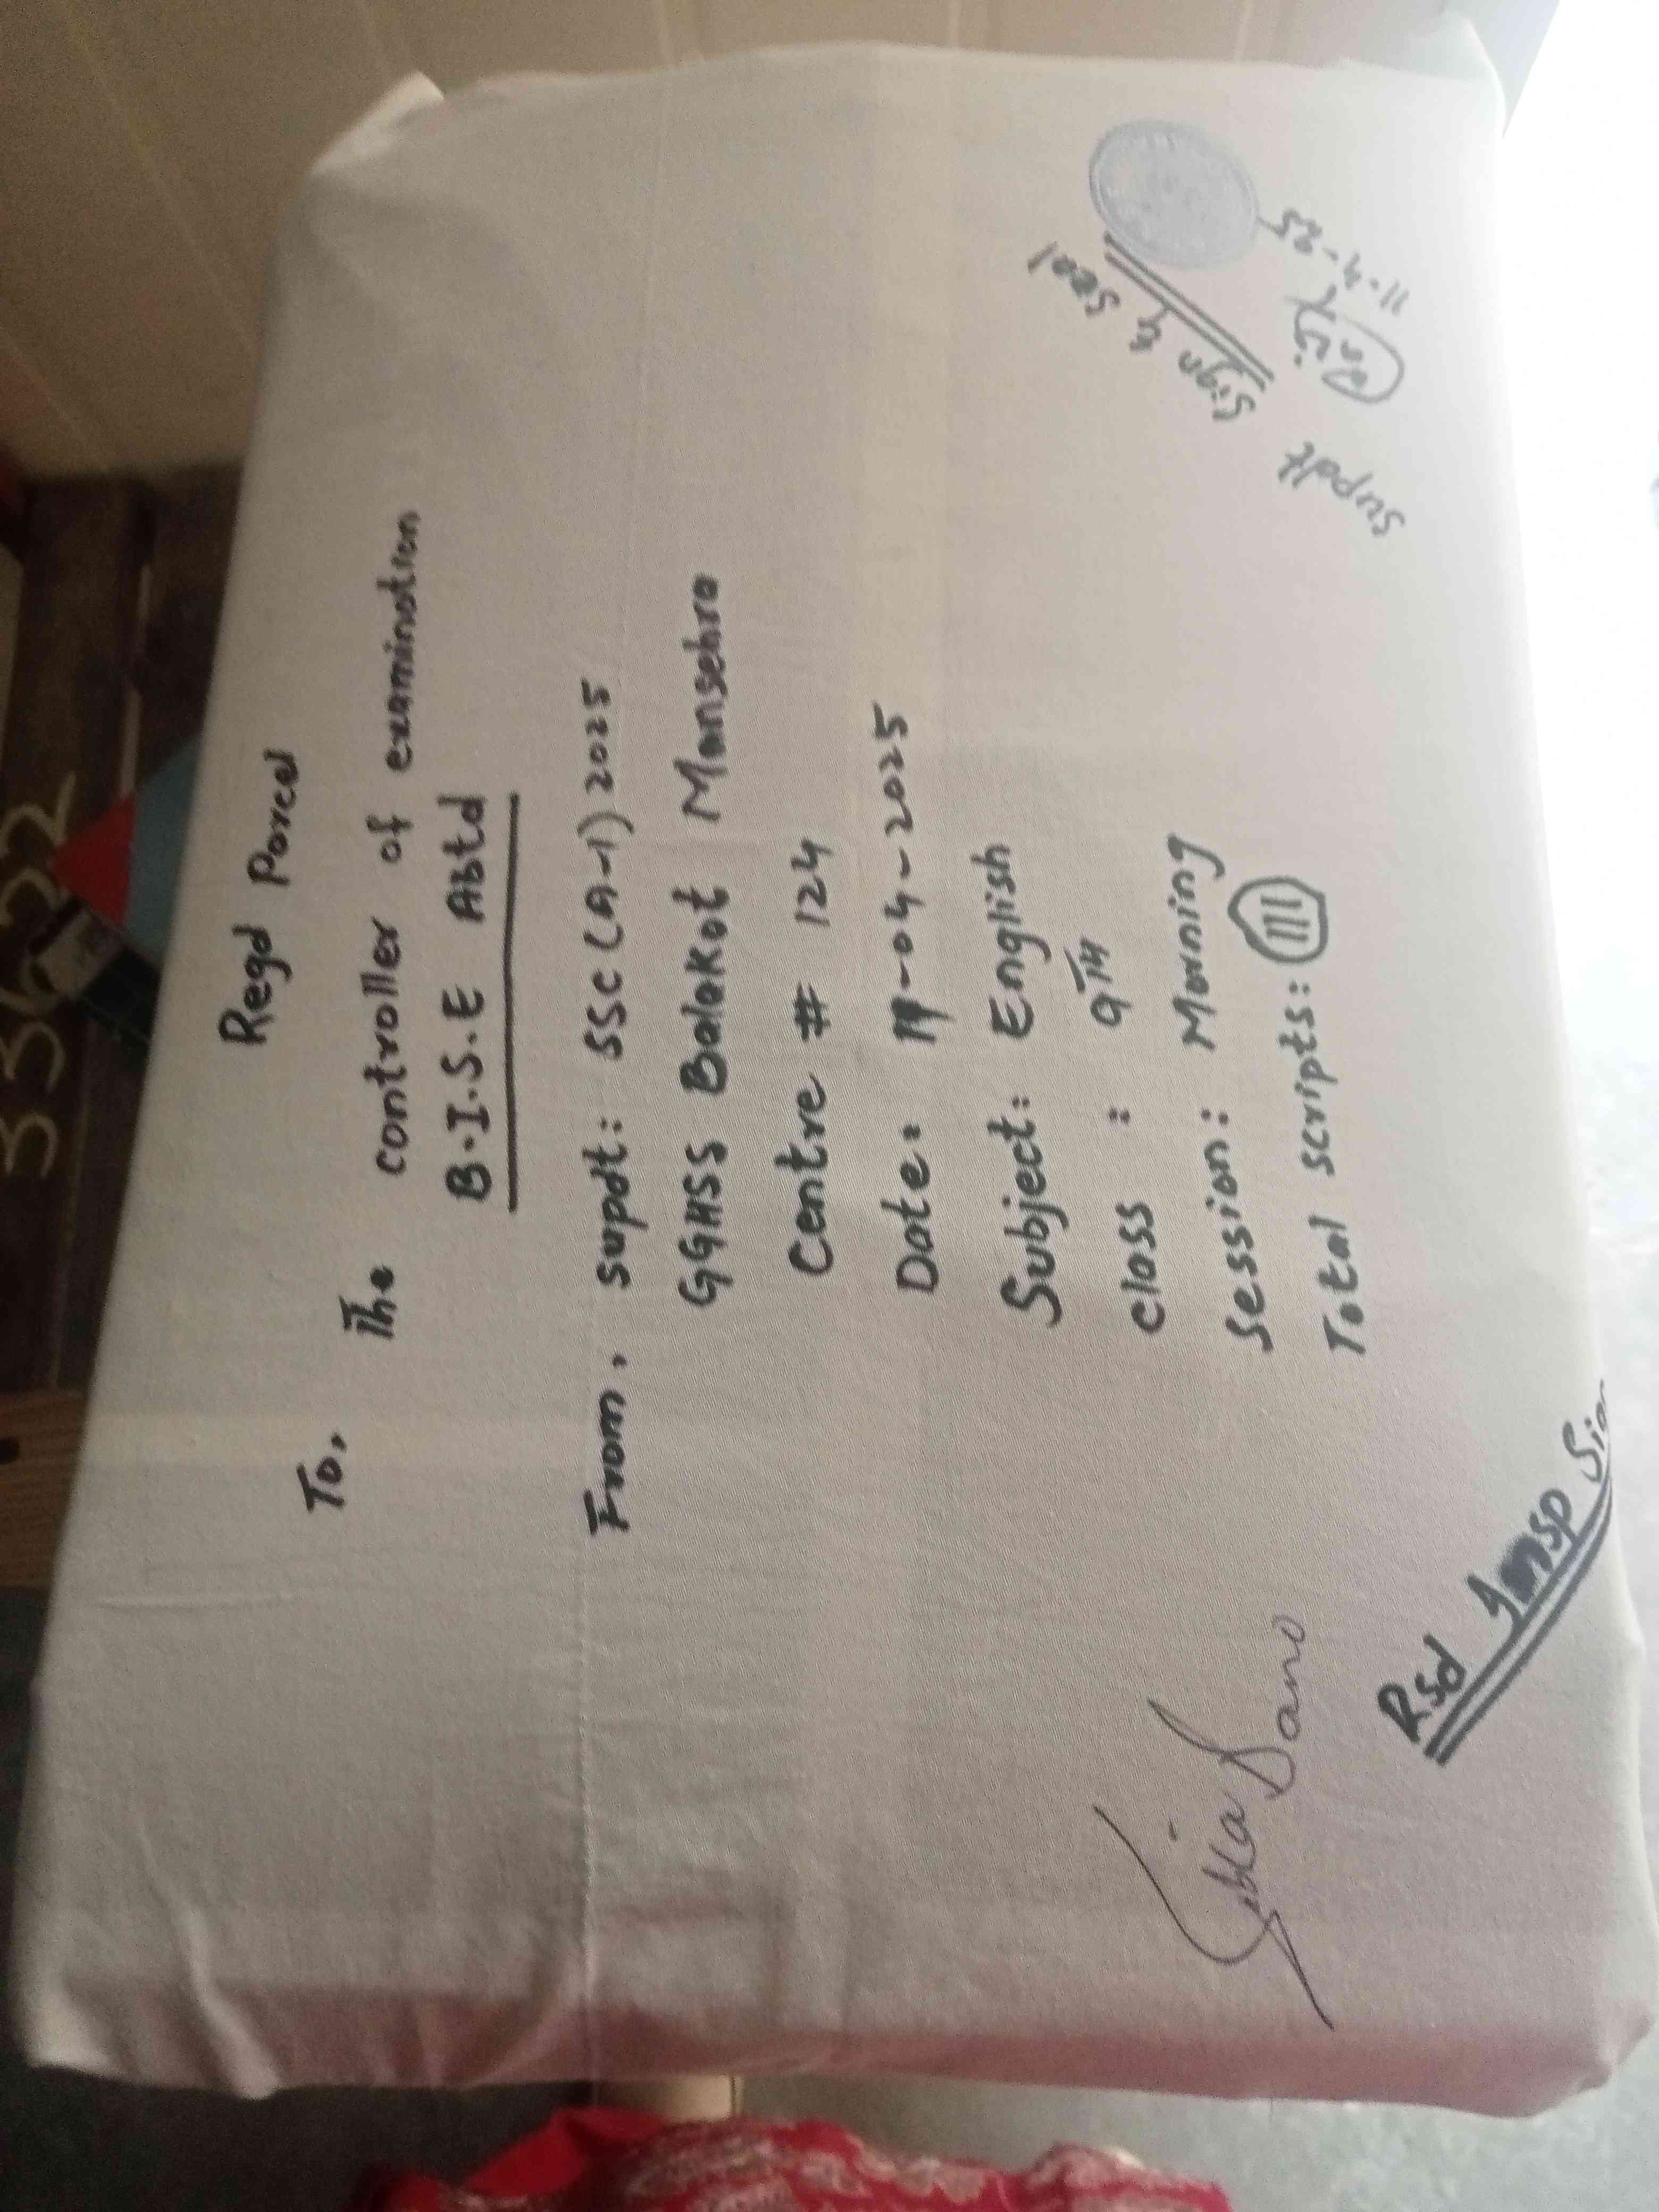 Regd Parcel
To,
The controller of examination
B.I.S.E Abtd
From, supdt: SSC (A-1) 2025
GGHSS Balakot Mansehra
Centre # 124
Date: 11-04-2025
Subject: English
Class : 9TH
Session: Morning
Total scripts: 111
Sign & Seal
Supdt
11-4-25
Sibia Bano
Rsd Insp Sign
33622